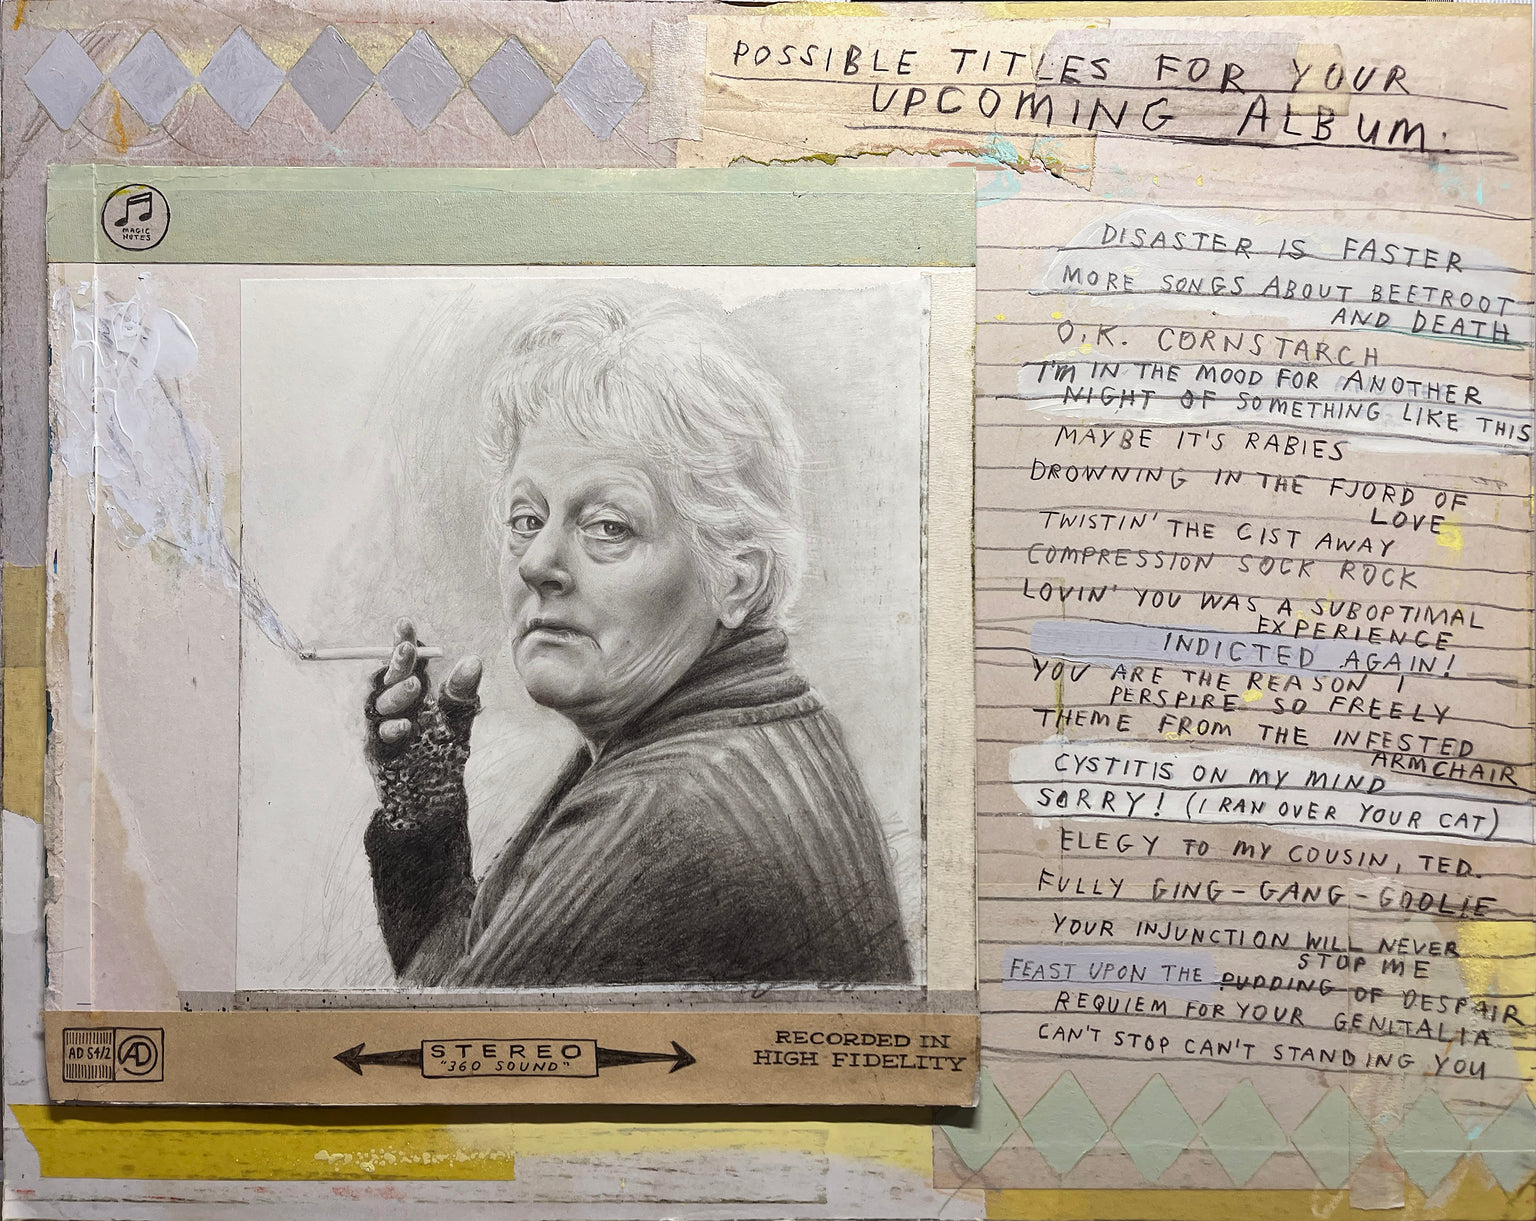 POSSIBLE TITLES FOR YOUR
UPCOMING ALBUM:
MAGIC
NOTES
DISASTER IS FASTER
MORE SONGS ABOUT BEETROOT
AND DEATH
O.K. CORNSTARCH
I'M IN THE MOOD FOR ANOTHER
NIGHT OF SOMETHING LIKE THIS
MAYBE IT'S RABIES
DROWNING IN THE FJORD OF
LOVE
TWISTIN' THE CIST AWAY
COMPRESSION SOCK ROCK
LOVIN' YOU WAS A SUBOPTIMAL
EXPERIENCE
INDICTED AGAIN!
YOU ARE THE REASON I
PERSPIRE SO FREELY
THEME FROM THE INFESTED
ARMCHAIR
CYSTITIS ON MY MIND
SORRY! (I RAN OVER YOUR CAT)
ELEGY TO MY COUSIN, TED.
FULLY GING-GANG-GOOLIE
YOUR INJUNCTION WILL NEVER
STOP ME
FEAST UPON THE PUDDING OF DESPAIR
REQUIEM FOR YOUR GENITALIA
CAN'T STOP CAN'T STANDING YOU
AD 54/2 AD
STEREO
"360 SOUND"
RECORDED IN
HIGH FIDELITY